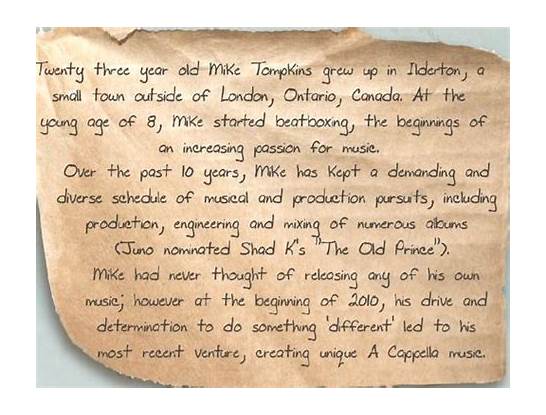 Twenty three year old Mike Tompkins grew up in Ilderton, a
small town outside of London, Ontario, Canada. At the
young age of 8, Mike started beatboxing, the beginnings of
an increasing passion for music.
Over the past 10 years, Mike has kept a demanding and
diverse schedule of musical and production pursuits, including
production, engineering and mixing of numerous albums
(Juno nominated Shad K's "The Old Prince").
Mike had never thought of releasing any of his own
music; however at the beginning of 2010, his drive and
determination to do something 'different' led to his
most recent venture, creating unique A Cappella music.